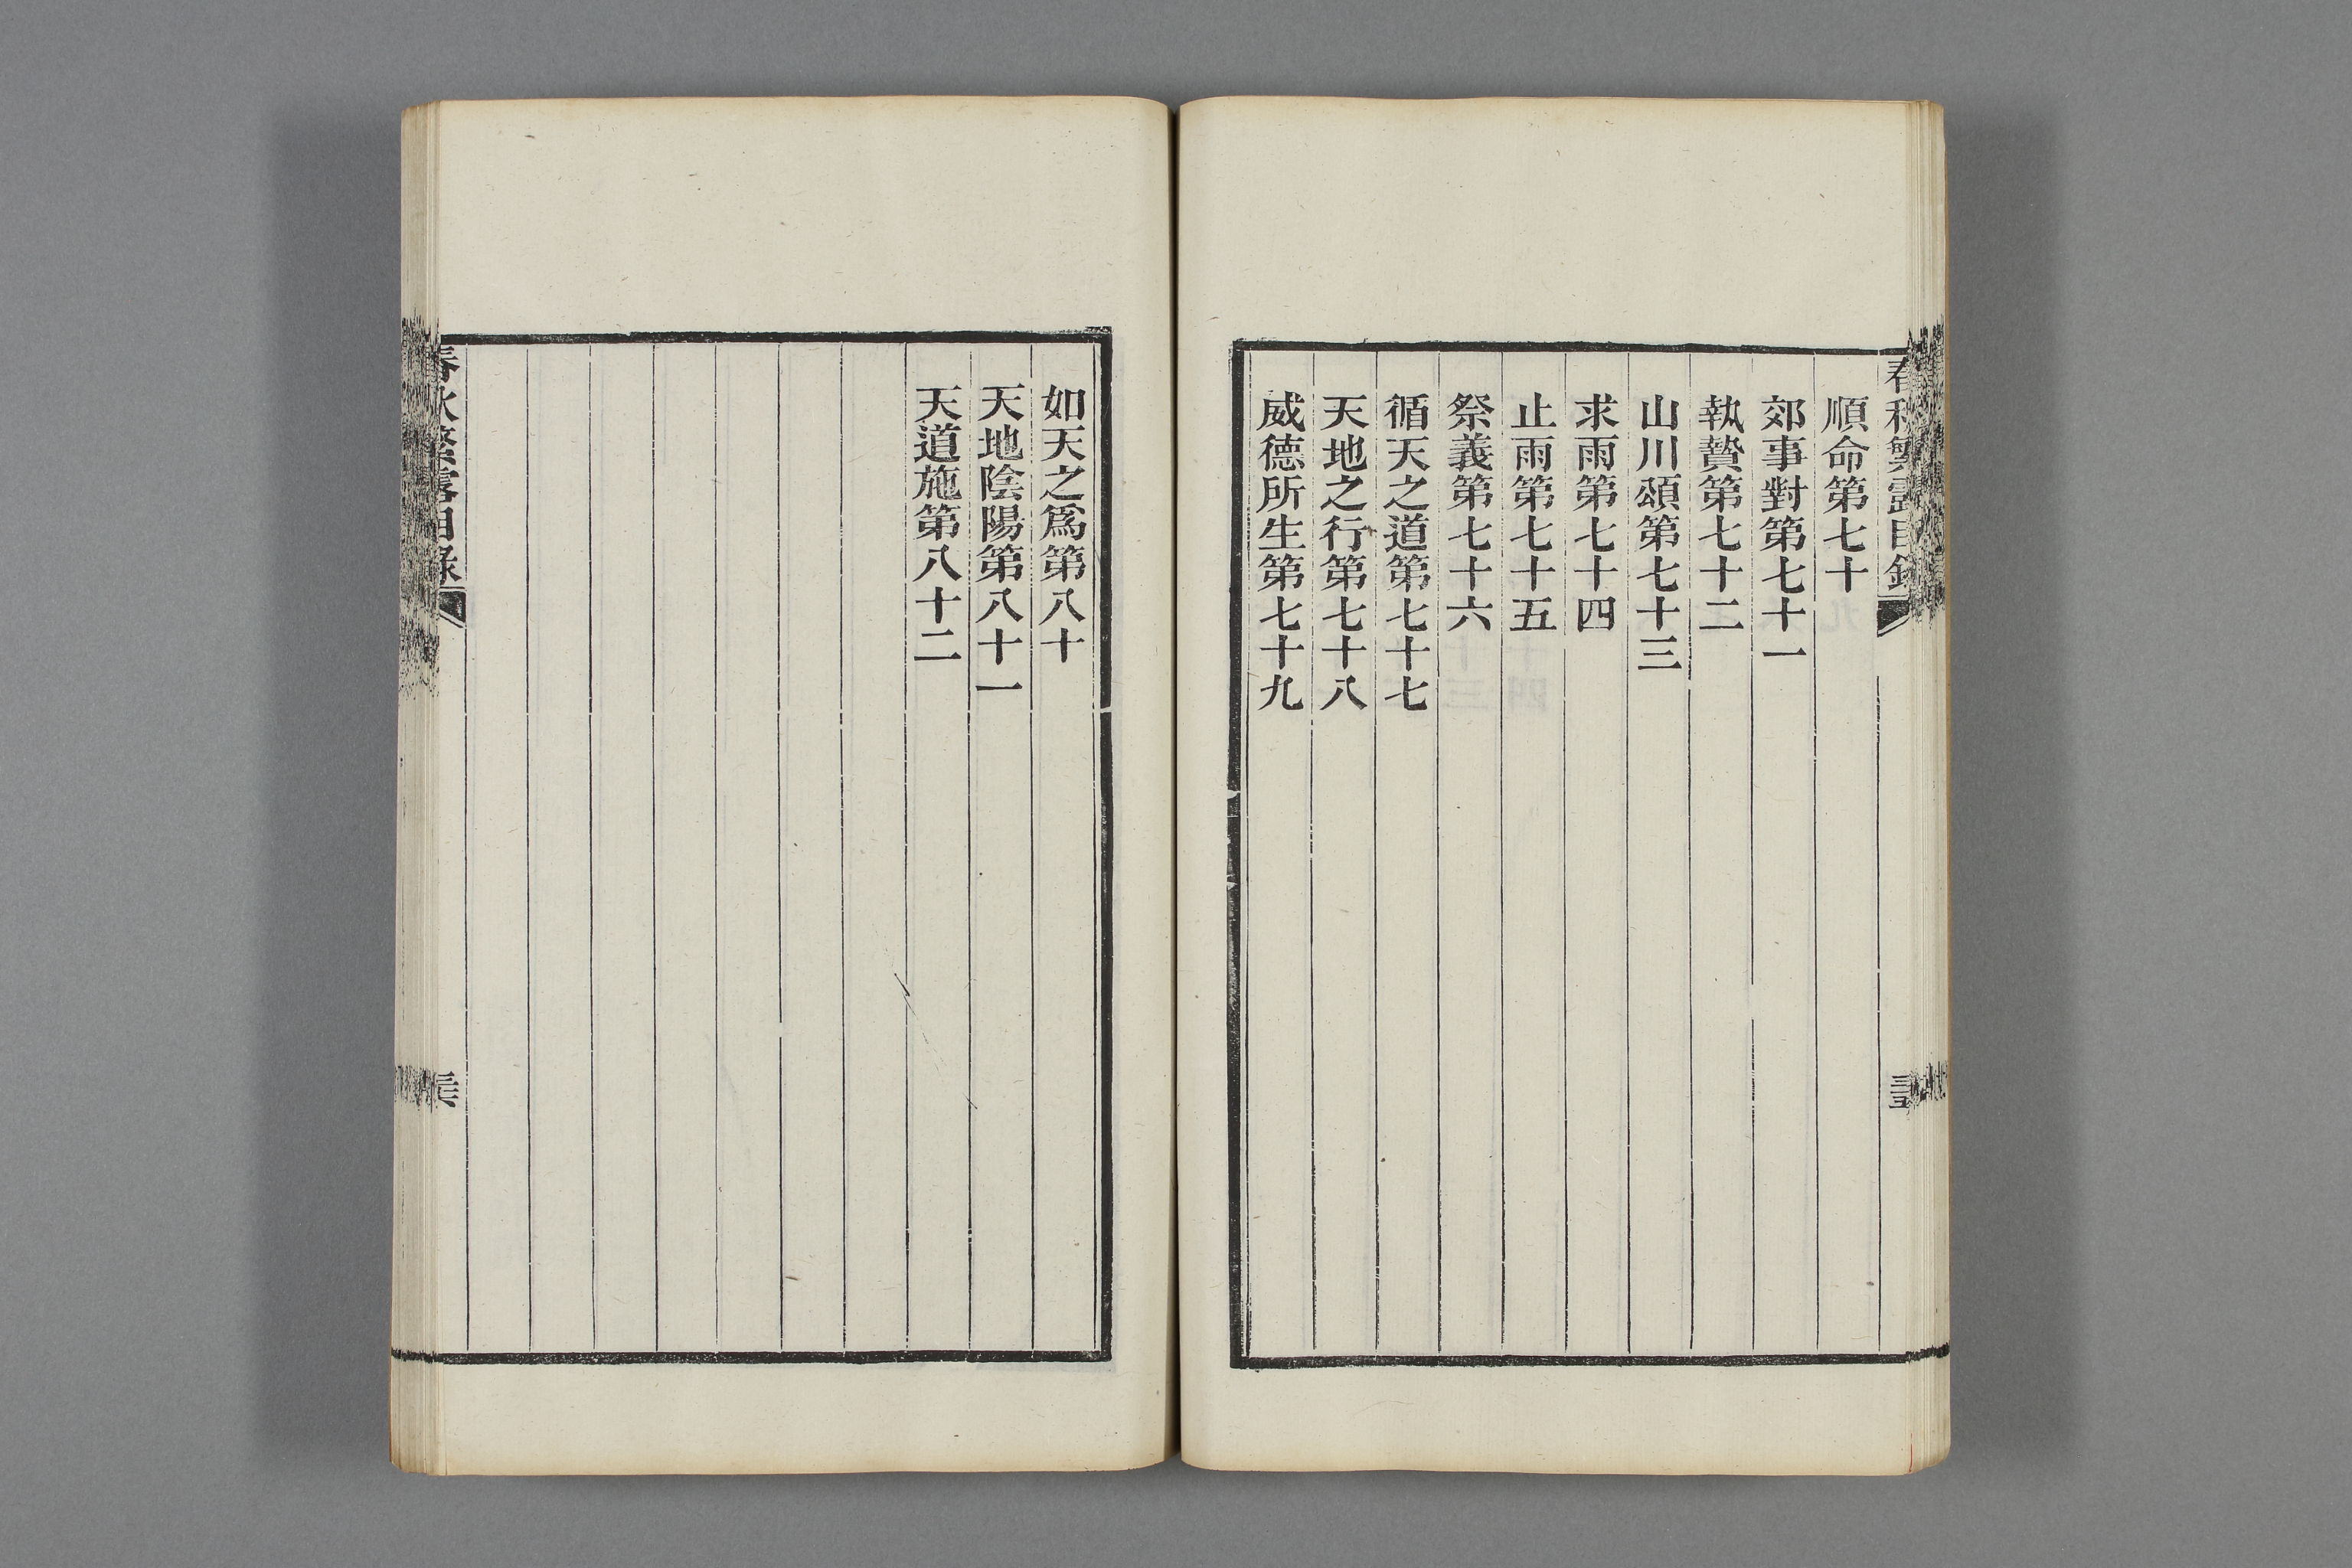 春秋繁露目錄
順命第七十
郊事對第七十一
執贄第七十二
山川頌第七十三
求雨第七十四
止雨第七十五
祭義第七十六
循天之道第七十七
天地之行第七十八
威德所生第七十九
如天之爲第八十
天地陰陽第八十一
天道施第八十二
春秋繁露目錄